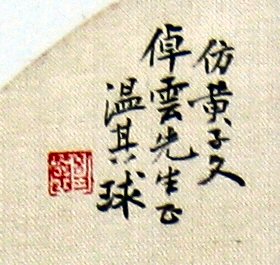 仿黃子久
倬雲先生正
温其球